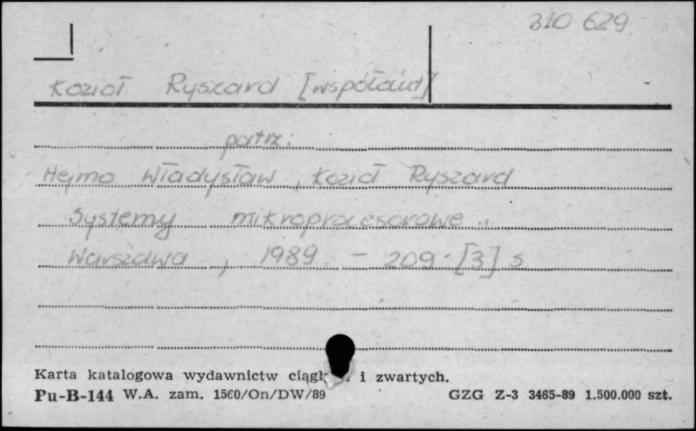 310 629
Kozioł Ryszard [współaut]
patrz.
Hejmo Władysław, Kozioł Ryszard
Systemy mikroprocesorowe..
Warszawa, 1989 - 209 [3] s
Karta katalogowa wydawnictw i zwartych.
Pu-B-144 W.A. zam. 1560/On/DW/89 GZG Z-3 3465-89 1.500.000 szt.